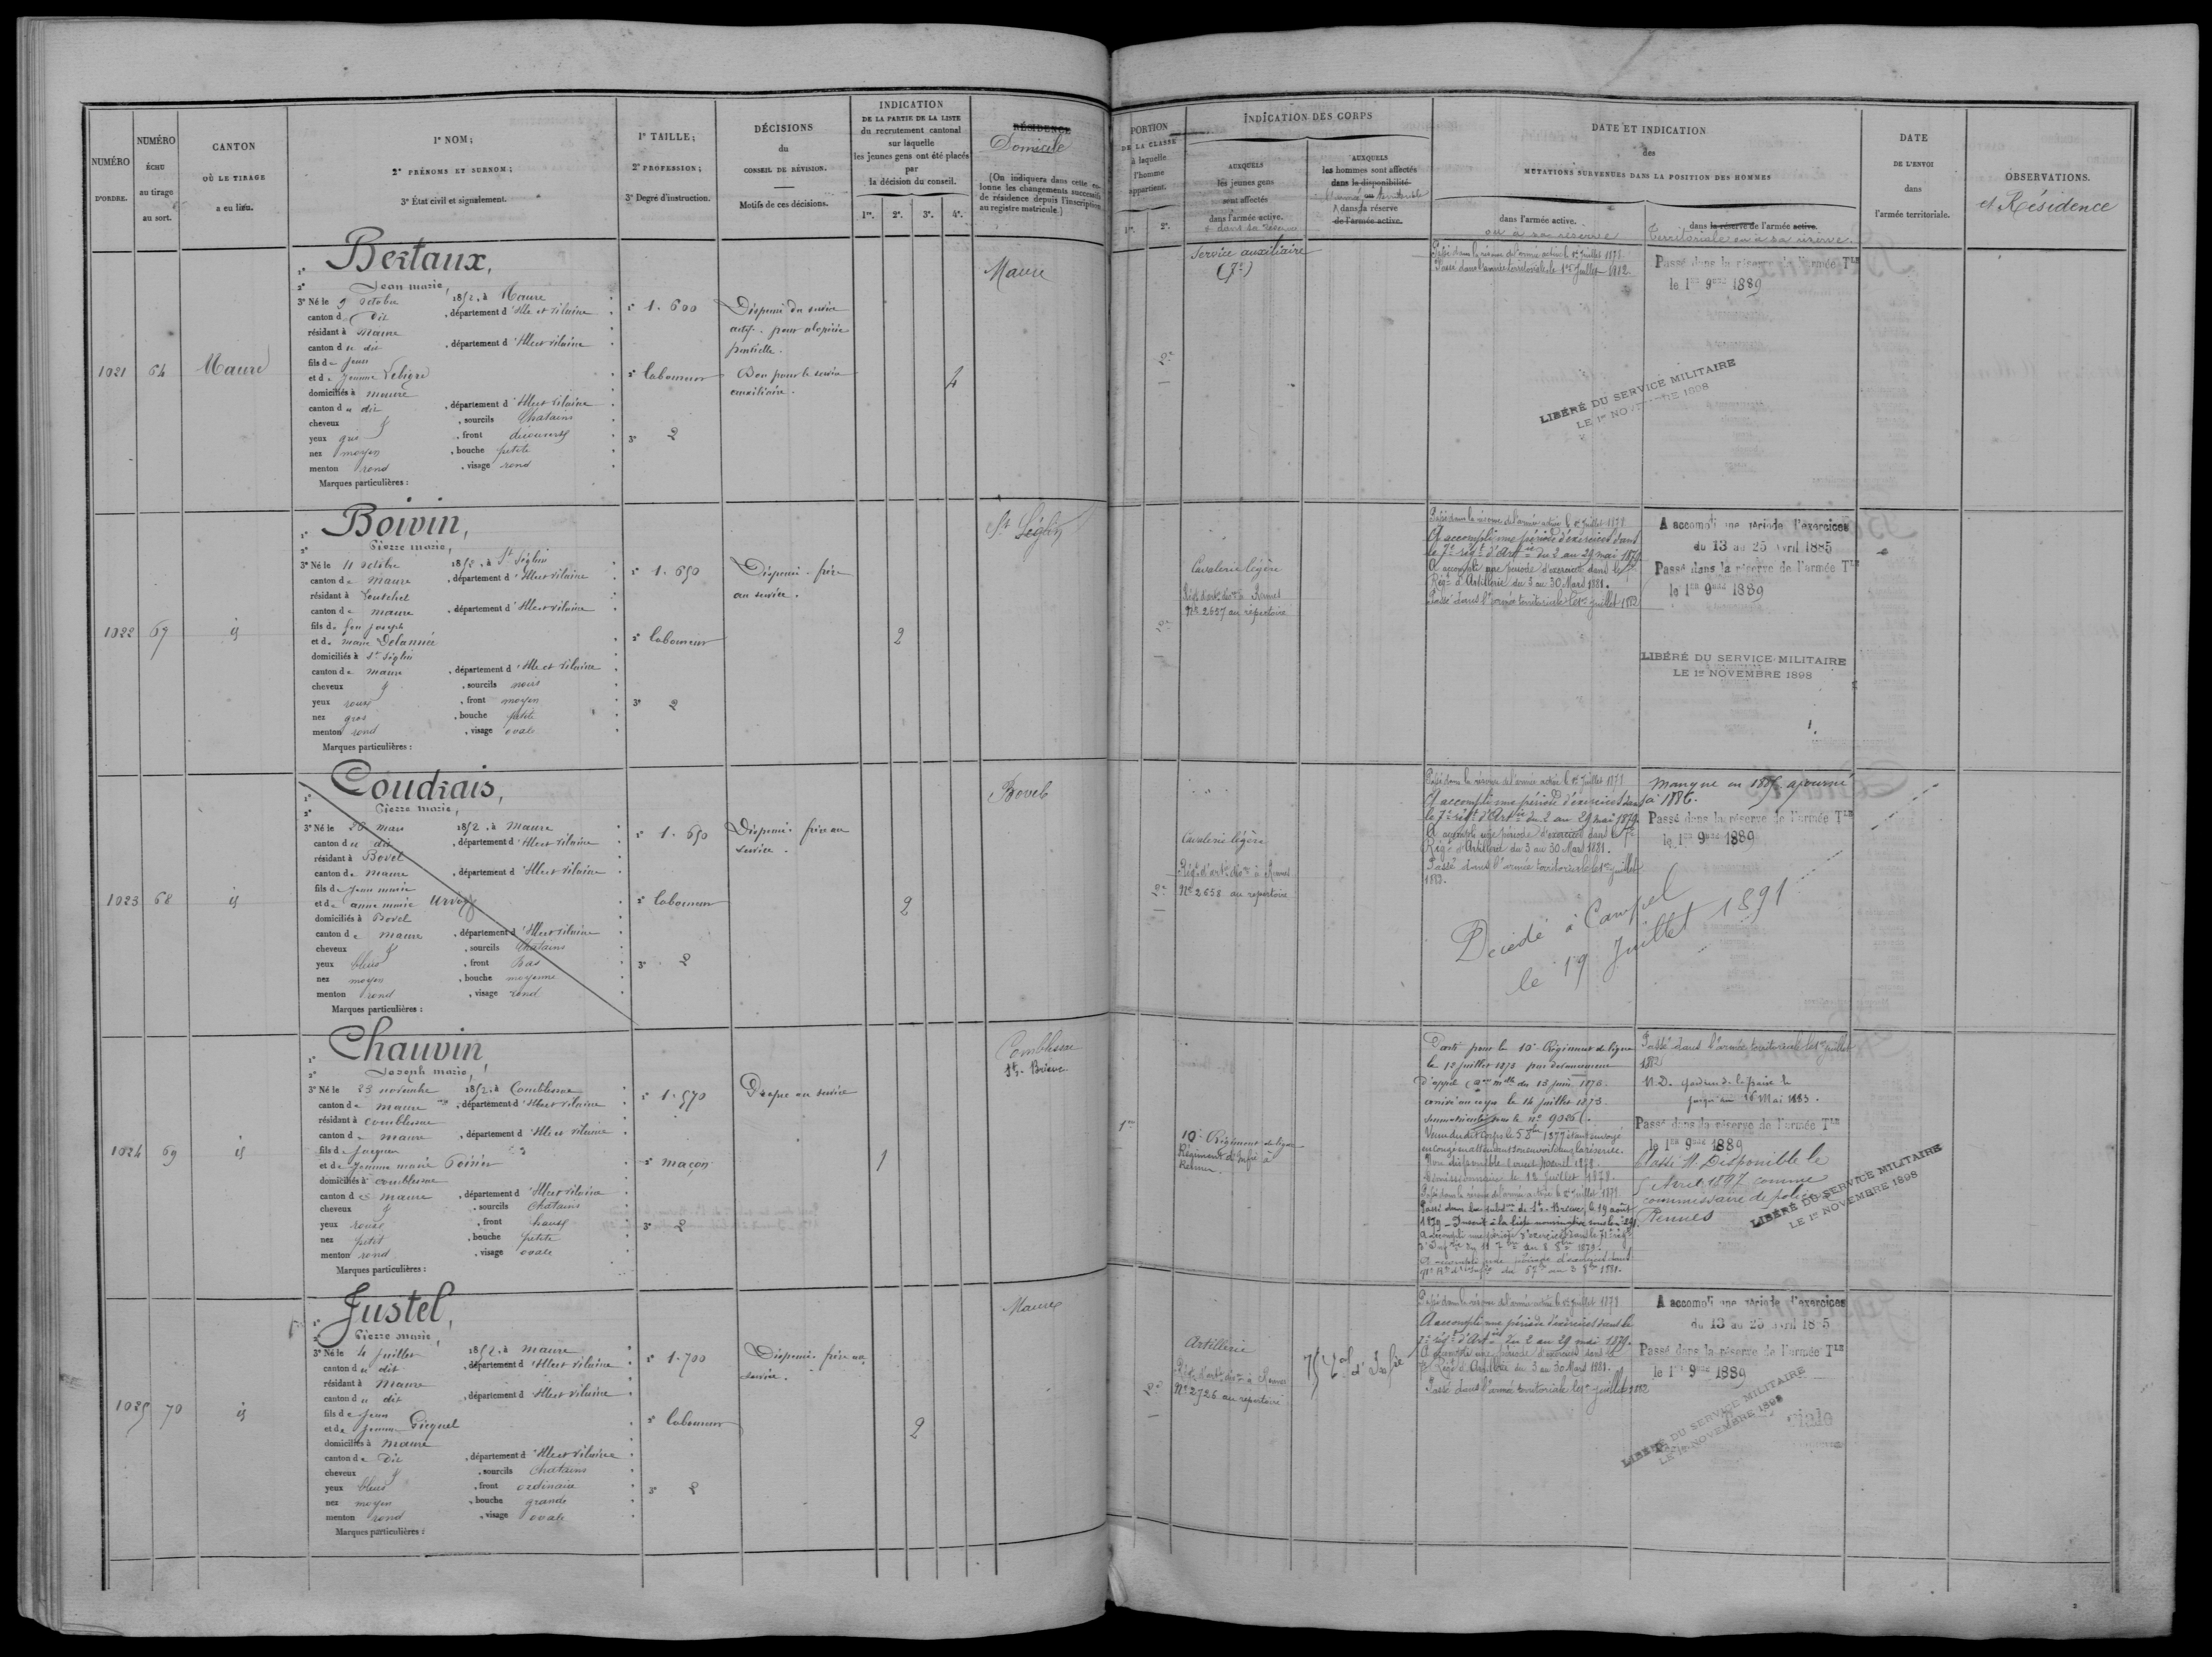 NUMÉRO
D'ORDRE.
NUMÉRO
ÉCHU
au tirage
au sort.
CANTON
OÙ LE TIRAGE
a eu lieu.
1º NOM;
2º PRÉNOMS ET SURNOM;
3º État civil et signalement.
1º TAILLE;
2º PROFESSION;
3º Degré d'instruction.
DÉCISIONS
du
CONSEIL DE RÉVISION.
Motifs de ces décisions.
INDICATION
DE LA PARTIE DE LA LISTE
du recrutement cantonal
sur laquelle
les jeunes gens ont été placés
par
la décision du conseil.
1re. 2e. 3e. 4e.
RÉSIDENCE
Domicile
(On indiquera dans cette co-
lonne les changements successifs
de résidence depuis l'inscription
au registre matricule.)
PORTION
DE LA CLASSE
à laquelle
l'homme
appartient.
1re. 2e.
INDICATION DES CORPS
AUXQUELS
les jeunes gens
sont affectés
dans l'armée active.
et dans sa réserve
AUXQUELS
les hommes sont affectés
dans la disponibilité
dans la réserve
de l'armée active.
DATE ET INDICATION
des
MUTATIONS SURVENUES DANS LA POSITION DES HOMMES
dans l'armée active.
ou à sa réserve
dans la réserve de l'armée active.
Territoriale ou à sa réserve.
DATE
DE L'ENVOI
dans
l'armée territoriale.
OBSERVATIONS.
et Résidence
1021 64 Maure
1º Bertaux,
2º Jean marie,
3º Né le 9 octobre 1852, à Maure
canton d dit, département d'Ille et Vilaine
résidant à Maure
canton du dit, département d'Ille et Vilaine
fils de Jean
et de Jeanne Lebigre
domiciliés à Maure
canton du dit, département d'Ille et Vilaine
cheveux &, sourcils Chatains
yeux gris, front découvert
nez moyen, bouche petite
menton rond, visage rond
Marques particulières :
1º 1.600
2º laboureur
3º 2
Dispensé du service
actif pour alopécie
partielle.
Bon pour le service
auxiliaire.
4
Maure
2e
Service auxiliaire
(7e)
Passé dans la réserve de l'armée active le 1er Juillet 1878
Passé dans l'armée territoriale le 1er Juillet 1882
Passé dans la réserve de l'armée Tle
le 1er 9bre 1889
LIBÉRÉ DU SERVICE MILITAIRE
LE 1er NOVEMBRE 1898
1022 67 id
1º Boivin,
2º Pierre marie,
3º Né le 11 octobre 1852, à St Séglin
canton de Maure, département d'Ille et Vilaine
résidant à Loutehel
canton de maure, département d'Ille et Vilaine
fils de feu joseph
et de marie Delannée
domiciliés à St Séglin
canton de maure, département d'Ille et Vilaine
cheveux &, sourcils noirs
yeux roux, front moyen
nez gros, bouche petite
menton rond, visage ovale
Marques particulières :
1º 1.650
2º laboureur
3º 2
Dispensé - frère
au service.
2
St Séglin
2e
Cavalerie légère
Régt d'artie à Rennes
Nº 2657 au répertoire
Passé dans la réserve de l'armée active le 1er Juillet 1878
A accompli une période d'exercices dans
le 7e régt d'Artie du 2 au 29 mai 1879
A accompli une période d'exercices dans le 7e
Régt d'Artillerie du 3 au 30 Mars 1881.
Passé dans l'armée territoriale le 1er juillet 1882
A accompli une période d'exercices
du 13 au 25 avril 1885
Passé dans la réserve de l'armée Tle
le 1er 9bre 1889
LIBÉRÉ DU SERVICE MILITAIRE
LE 1er NOVEMBRE 1898
1023 68 id
1º Coudrais,
2º Pierre marie,
3º Né le 26 mars 1852, à maure
canton du dit, département d'Ille et Vilaine
résidant à Bovel
canton de Maure, département d'Ille et Vilaine
fils de Jean marie
et de anne marie Urvoy
domiciliés à Bovel
canton de maure, département d'Ille et Vilaine
cheveux &, sourcils Chatains
yeux bleus, front bas
nez moyen, bouche moyenne
menton rond, visage rond
Marques particulières :
1º 1.650
2º laboureur
3º 2
Dispensé frère au
service.
2
Bovel
2e
Cavalerie légère
Régt d'artie à Rennes
Nº 2658 au répertoire
Passé dans la réserve de l'armée active le 1er Juillet 1878
A accompli une période d'exercices dans
le 7e régt d'Artie du 2 au 29 mai 1879
A accompli une période d'exercices dans le 7e
Régt d'Artillerie du 3 au 30 Mars 1881.
Passé dans l'armée territoriale le 1er juillet
1882.
Manque en 1885 ajourné
à 1886.
Passé dans la réserve de l'armée Tle
le 1er 9bre 1889
Décédé à Campel
le 19 Juillet 1891
1024 69 id
1º Chauvin,
2º Joseph marie,
3º Né le 23 novembre 1852, à Comblessac
canton de maure, département d'Ille et Vilaine
résidant à comblessac
canton de maure, département d'Ille et Vilaine
fils de Jacques
et de Jeanne marie Poirier
domiciliés à comblessac
canton de maure, département d'Ille et Vilaine
cheveux &, sourcils Chatains
yeux roux, front haut
nez petit, bouche petite
menton rond, visage ovale
Marques particulières :
1º 1.570
2º maçon
3º 2
Propre au service
1
Comblessac
St Brieuc
1re
10e Régiment de ligne
Régiment d'Infie à
Rennes
Parti pour le 10e Régiment de ligne
le 12 juillet 1873 par devancement
d'appel
arrivé au corps le 14 juillet 1873
immatriculé sous le nº 9025
en congé en attendant son envoi dans la réserve.
Non disponible
Démissionnaire le 18 Juillet 1878.
Passé dans la réserve de l'armée active le 1er Juillet 1878
Passé dans la subdon de St Brieuc, le 19 août
1879 - Inscrit à la liste nominative
A accompli une période d'exercices dans le 71e régt
d'Infie du 11 7bre au 8 8bre 1879.
A accompli une période d'exercices dans
Passé dans l'armée territoriale le 1er juillet
1882
N.D.
jusqu'au 16 Mai 1883.
Passé dans la réserve de l'armée Tle
le 1er 9bre 1889
Classé N. Disponible le
5 Avril 1897 comme
commissaire de police à
Rennes
LIBÉRÉ DU SERVICE MILITAIRE
LE 1er NOVEMBRE 1898
1025 70 id
1º Justel,
2º Pierre marie,
3º Né le 4 juillet 1852, à maure
canton du dit, département d'Ille et Vilaine
résidant à Maure
canton du dit, département d'Ille et Vilaine
fils de Jean
et de Jeanne Gicquel
domiciliés à Maure
canton de Dit, département d'Ille et Vilaine
cheveux &, sourcils Chatains
yeux bleus, front ordinaire
nez moyen, bouche grande
menton rond, visage ovale
Marques particulières :
1º 1.700
2º laboureur
3º 2
Dispensé frère au
service.
2
Maure
2e
Artillerie
Régt d'artie à Rennes
Nº 2726 au répertoire
75e Rt d'Infie
Passé dans la réserve de l'armée active le 1er Juillet 1878
A accompli une période d'exercices dans le
7e régt d'Artie du 2 au 29 mai 1879.
A accompli une période d'exercices dans le
7e Régt d'Artillerie du 3 au 30 Mars 1881.
Passé dans l'armée territoriale le 1er juillet 1882
A accompli une période d'exercices
du 13 au 25 avril 1885
Passé dans la réserve de l'armée Tle
le 1er 9bre 1889
LIBÉRÉ DU SERVICE MILITAIRE
LE 1er NOVEMBRE 1898